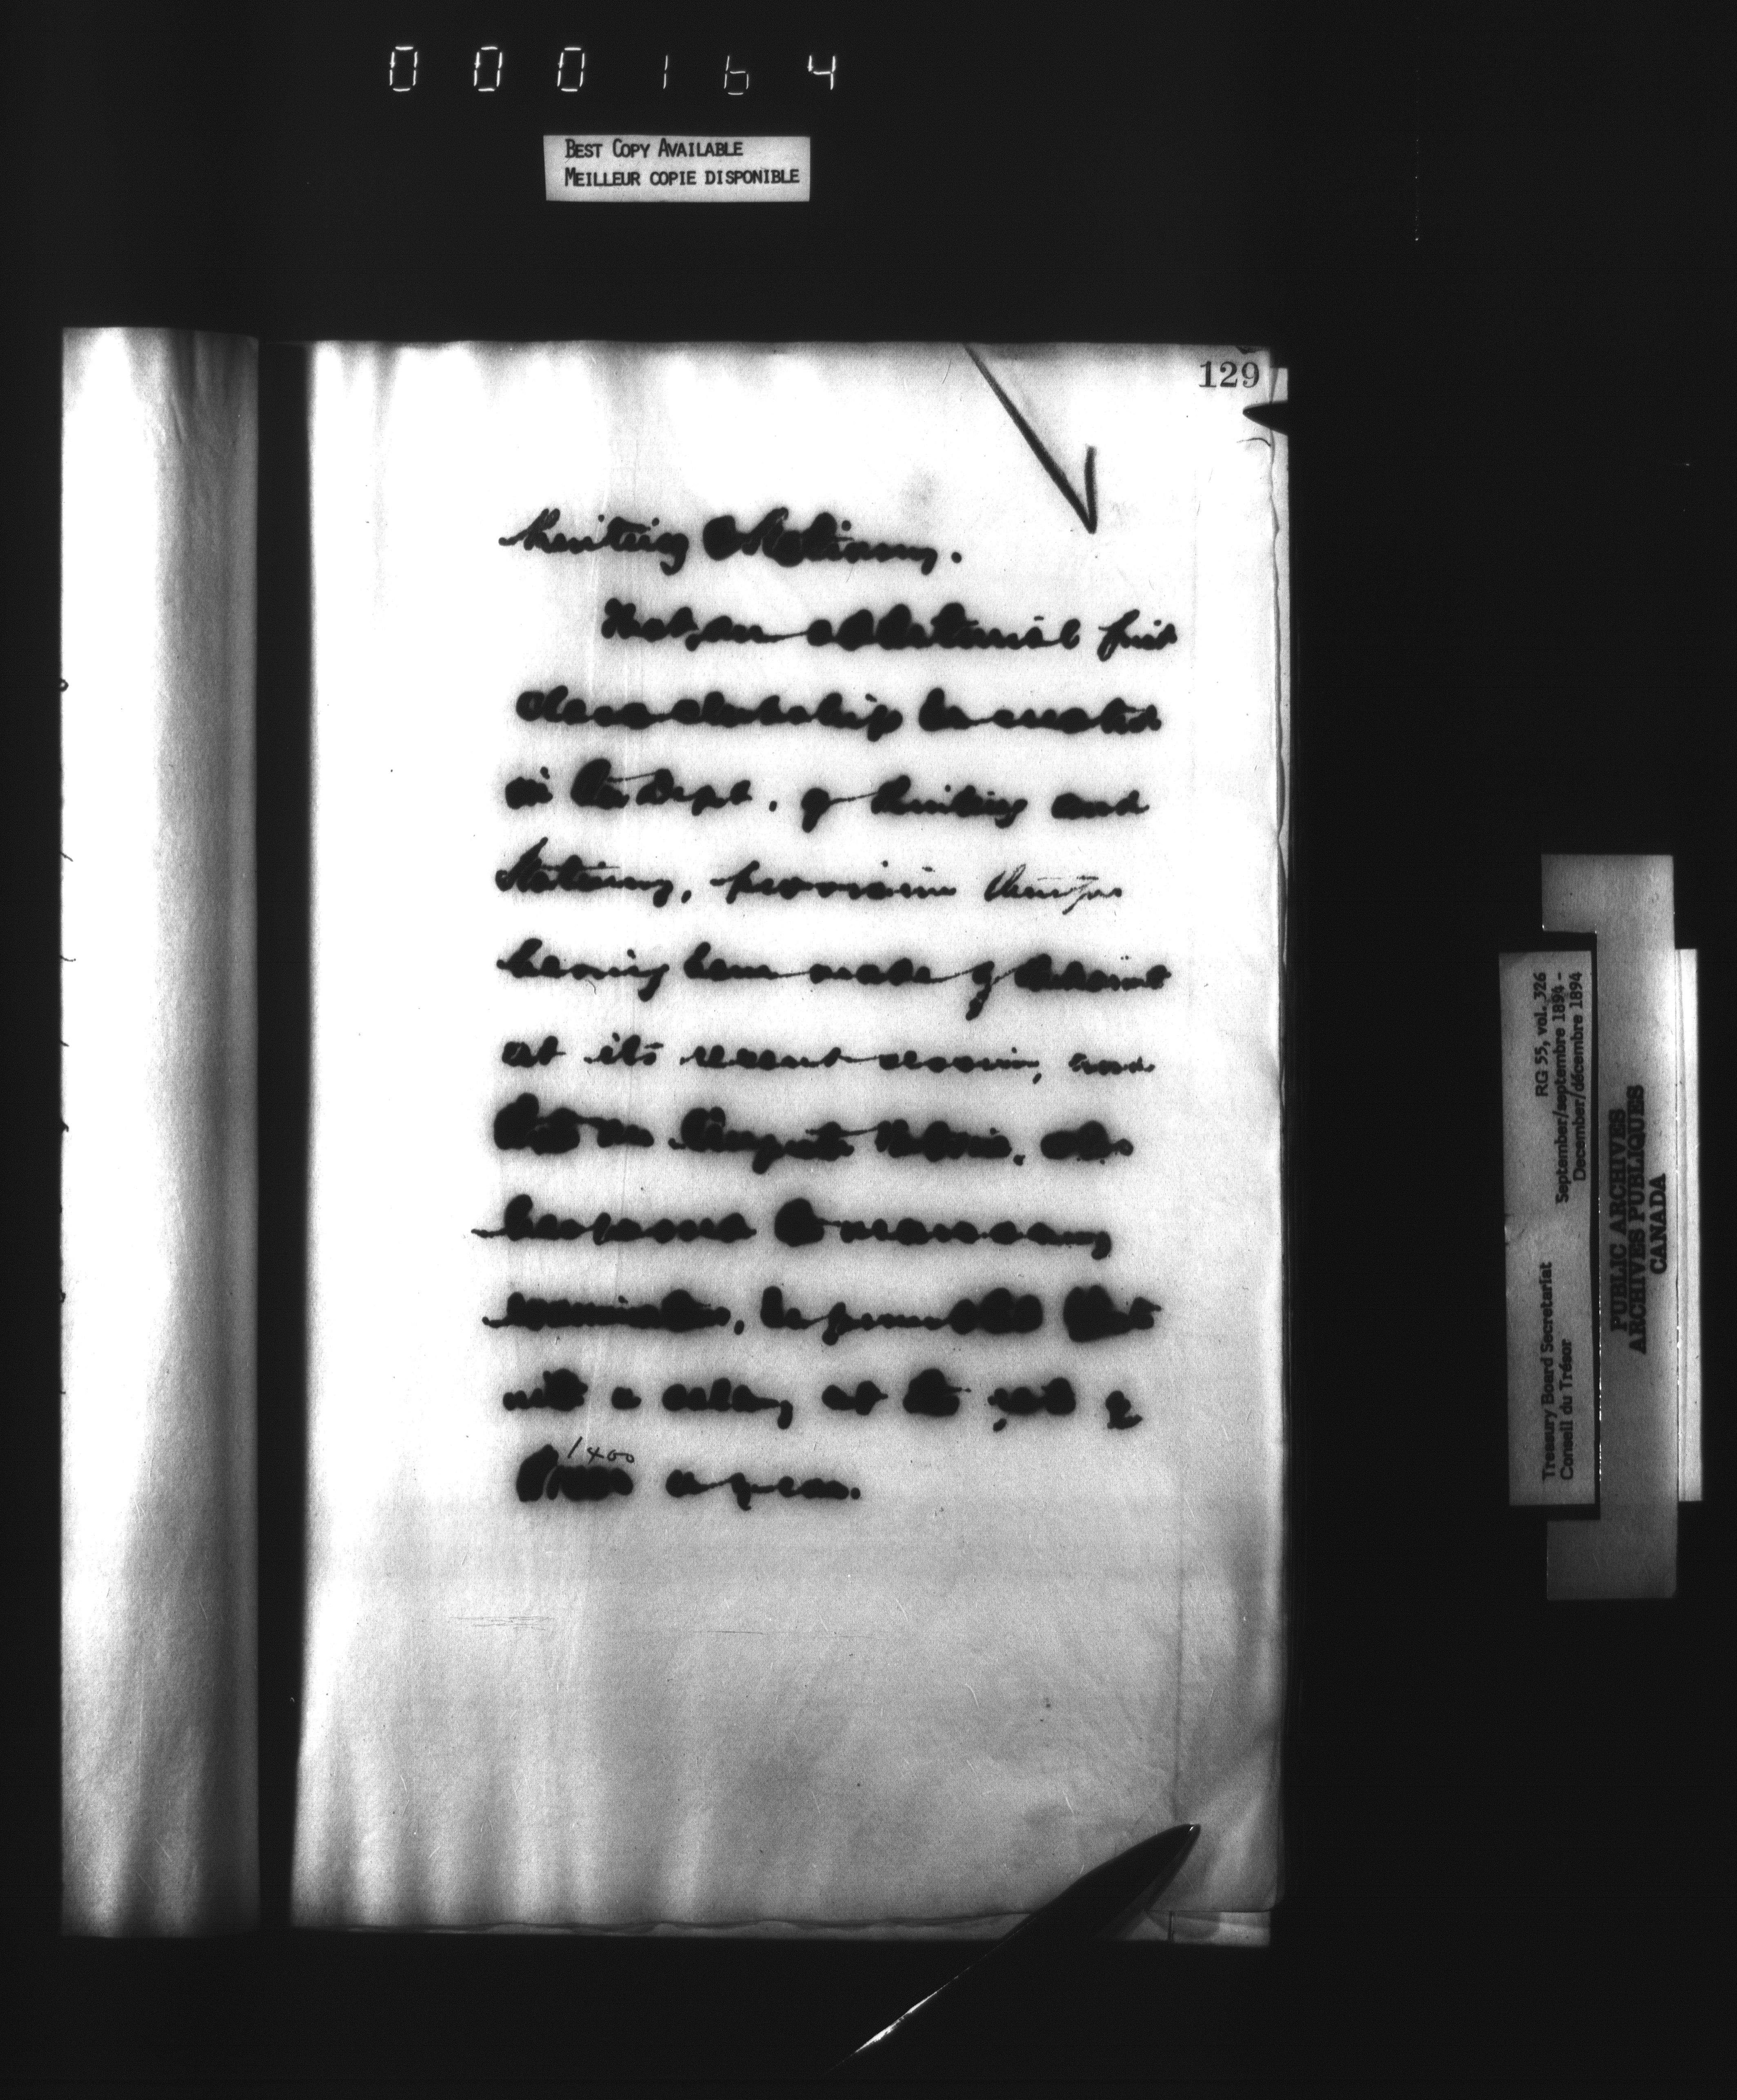 000164
BEST COPY AVAILABLE
MEILLEUR COPIE DISPONIBLE
129
Printing & Stationery.
That an additional first
class clerkship be created
in the Dept. of Printing and
Stationery, provision therefor
having been made by Parliament
at its recent session, and
that Mr. Potvin, who
has passed the necessary
examination, be promoted thereto
with a salary at the rate of
1400 a year.
Treasury Board Secretariat RG 55, vol. 326
Conseil du Trésor September/septembre 1894 -
December/décembre 1894
PUBLIC ARCHIVES
ARCHIVES PUBLIQUES
CANADA